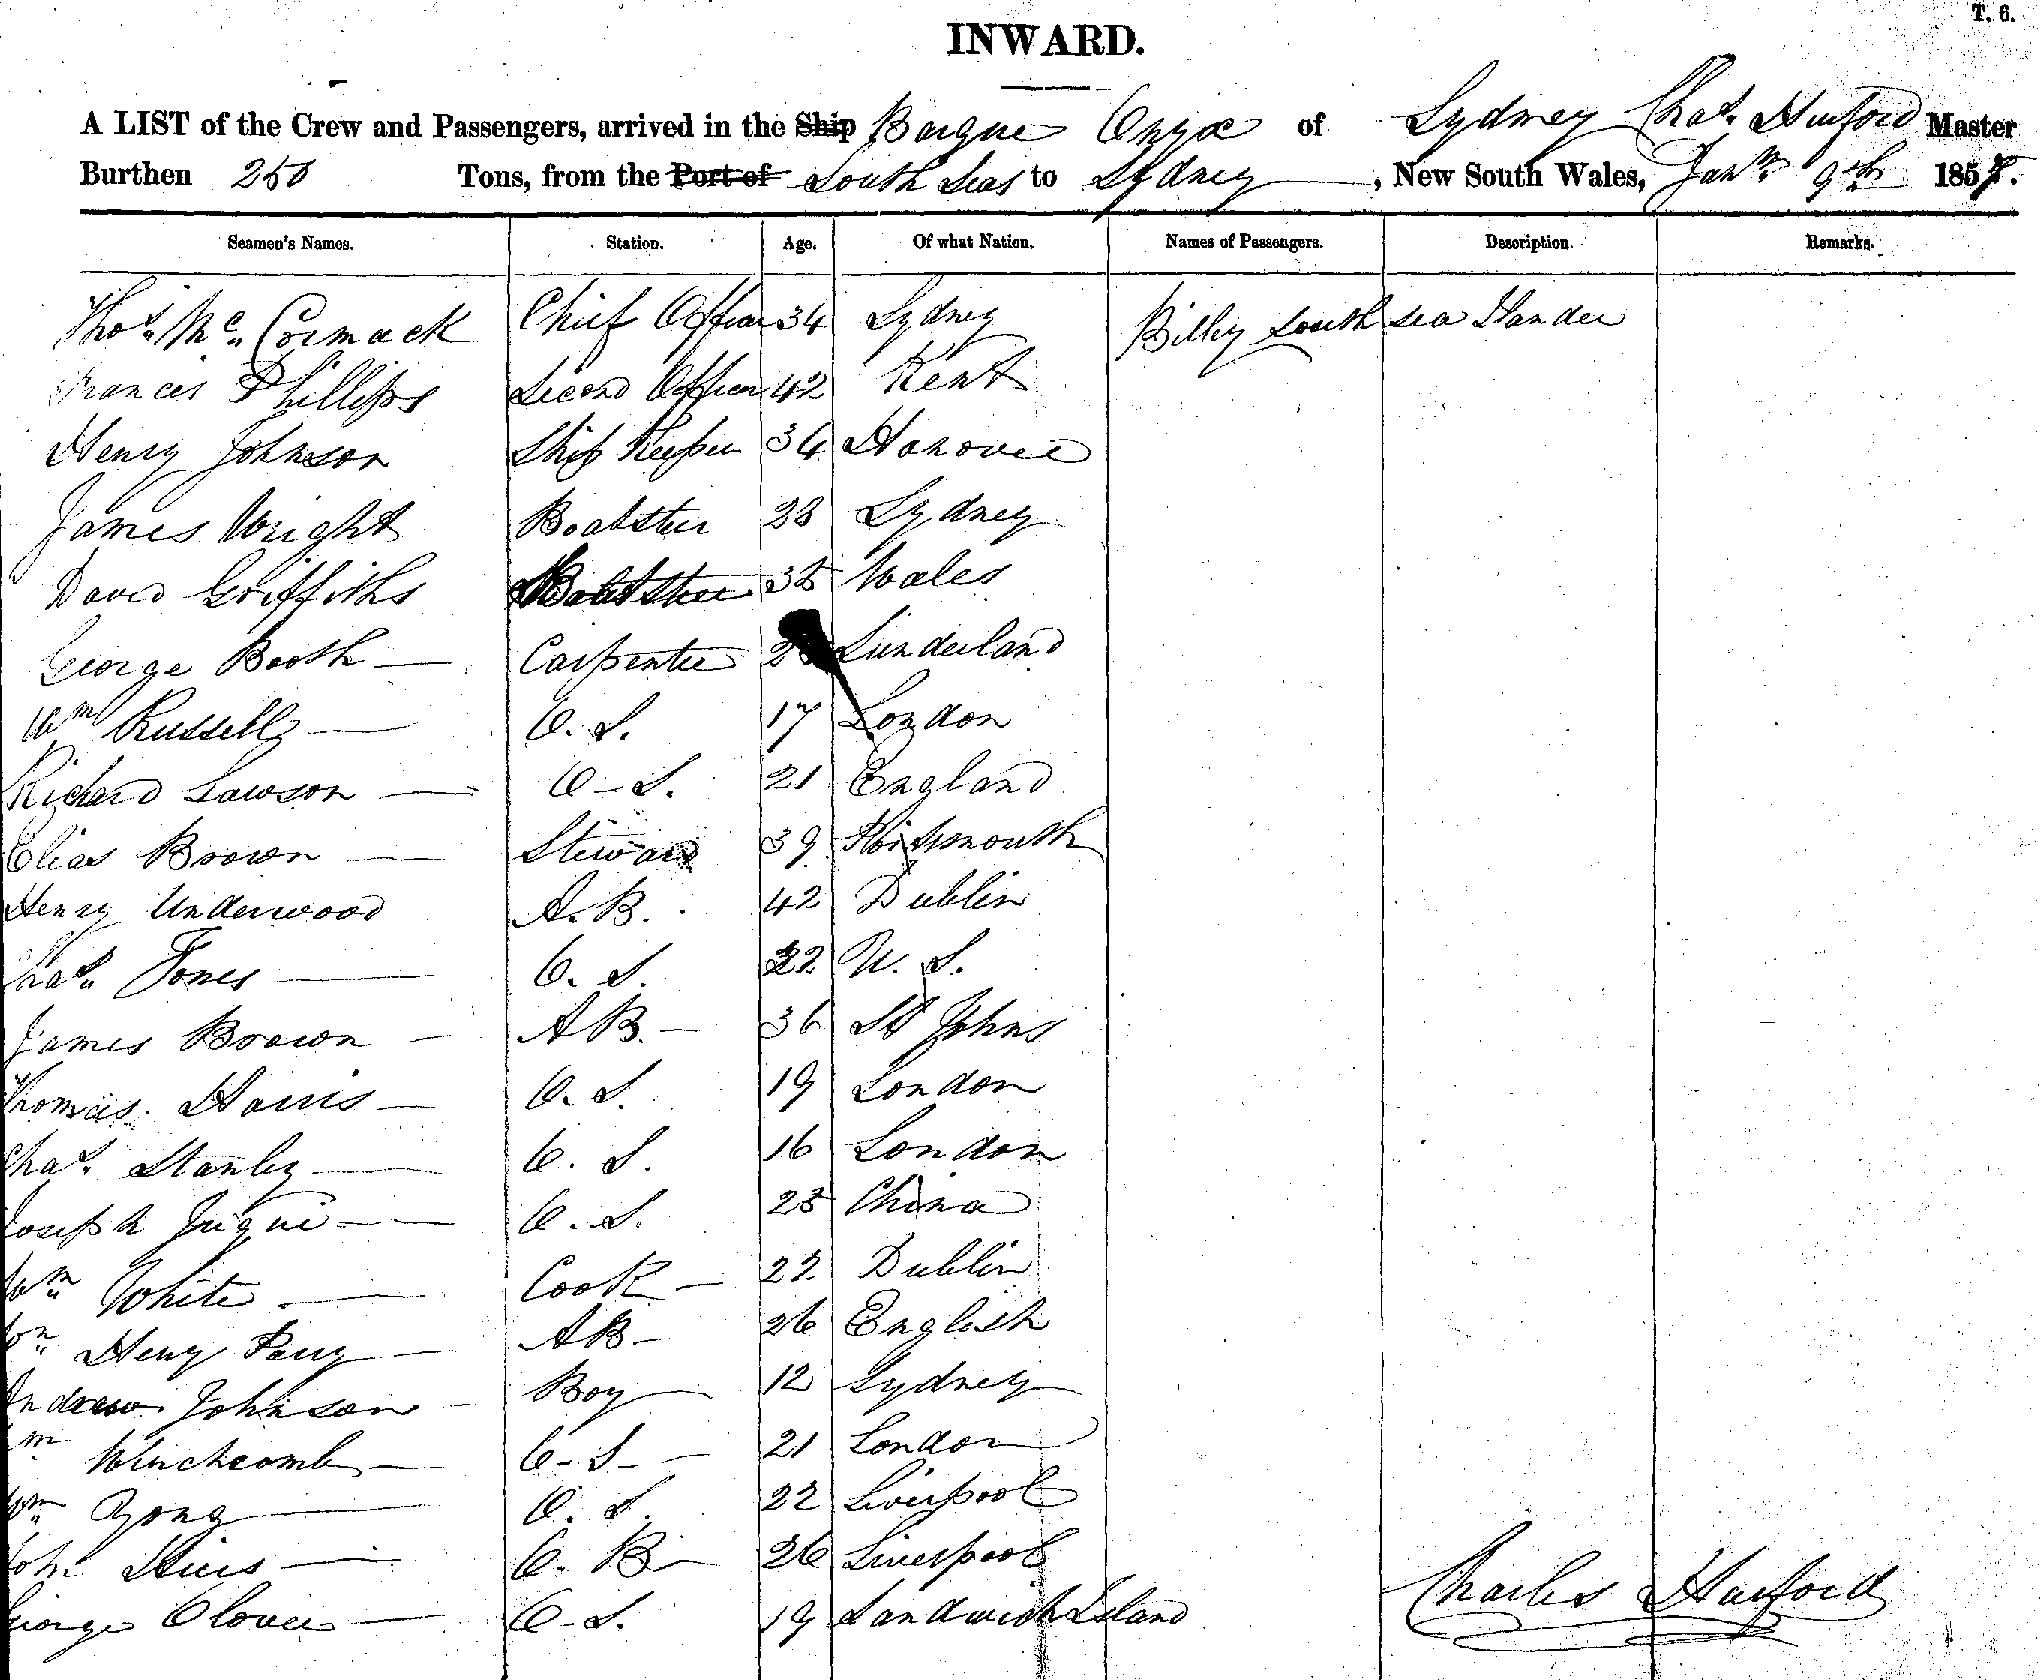 T. 6.
INWARD.
A LIST of the Crew and Passengers, arrived in the Ship Barque Onyx of Sydney Chas. Harford Master
Burthen 250 Tons, from the Port of South Seas to Sydney, New South Wales, Jany. 9th 1857.
Seamen's Names. Station. Age. Of what Nation. Names of Passengers. Description. Remarks.
Thos. Mc. Cormack Chief Officer 34 Sydney Billy South Sea Ilander
Francis Phillips Second Officer 42 Kent
Henry Johnson Ship Keeper 34 Hanover
James Wright Boatster 23 Sydney
David Griffiths Boatster 35 Wales
George Booth Carpenter Sunderland
Wm Russell O. S. 17 London
Richard Lawson O-S. 21 England
Elias Brown Steward 39 Portsmouth
Henry Underwood A.B. 42 Dublin
Chas. Jones O. S. 22 U. S.
James Brown AB. 36 St Johns
Thomas Harris O. S. 19 London
Chas. Stanley O. S. 16 London
Joseph O. S. 23 China
Wm. White Cook 22 Dublin
Henry Parry AB 26 English
Andrew Johnson Boy 12 Sydney
Wm Winchcomb O-S- 21 London
Wm. Yong O. S. 22 Liverpool
John B 26 Liverpool
George Glover O-S. 19 Sandwich Island
Charles Harford